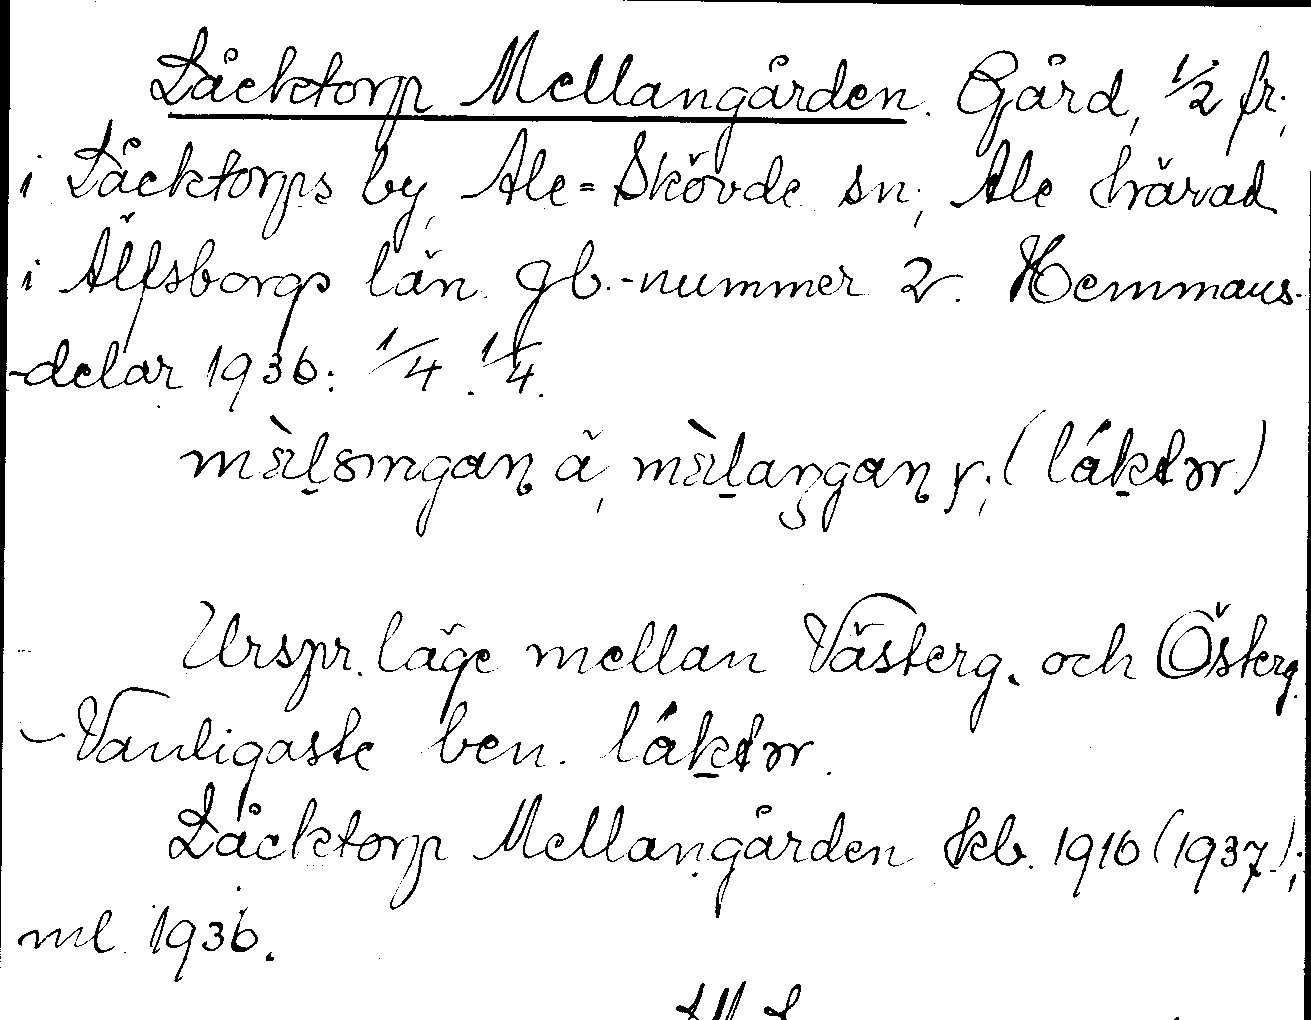 Låcktorp Mellangården. Gård, 1/2 fr.,
i Låcktorps by, Ale-Skövde sn, Ale härad
i Älfsborgs län. Jb.-nummer 2. Hemmans-
-delar 1936: 1/4. 1/4.
Urspr. läge mellan Västerg. och Österg.
- Vanligaste ben.
Låcktorp Mellangården kb. 1916 (1937);
ml 1936.